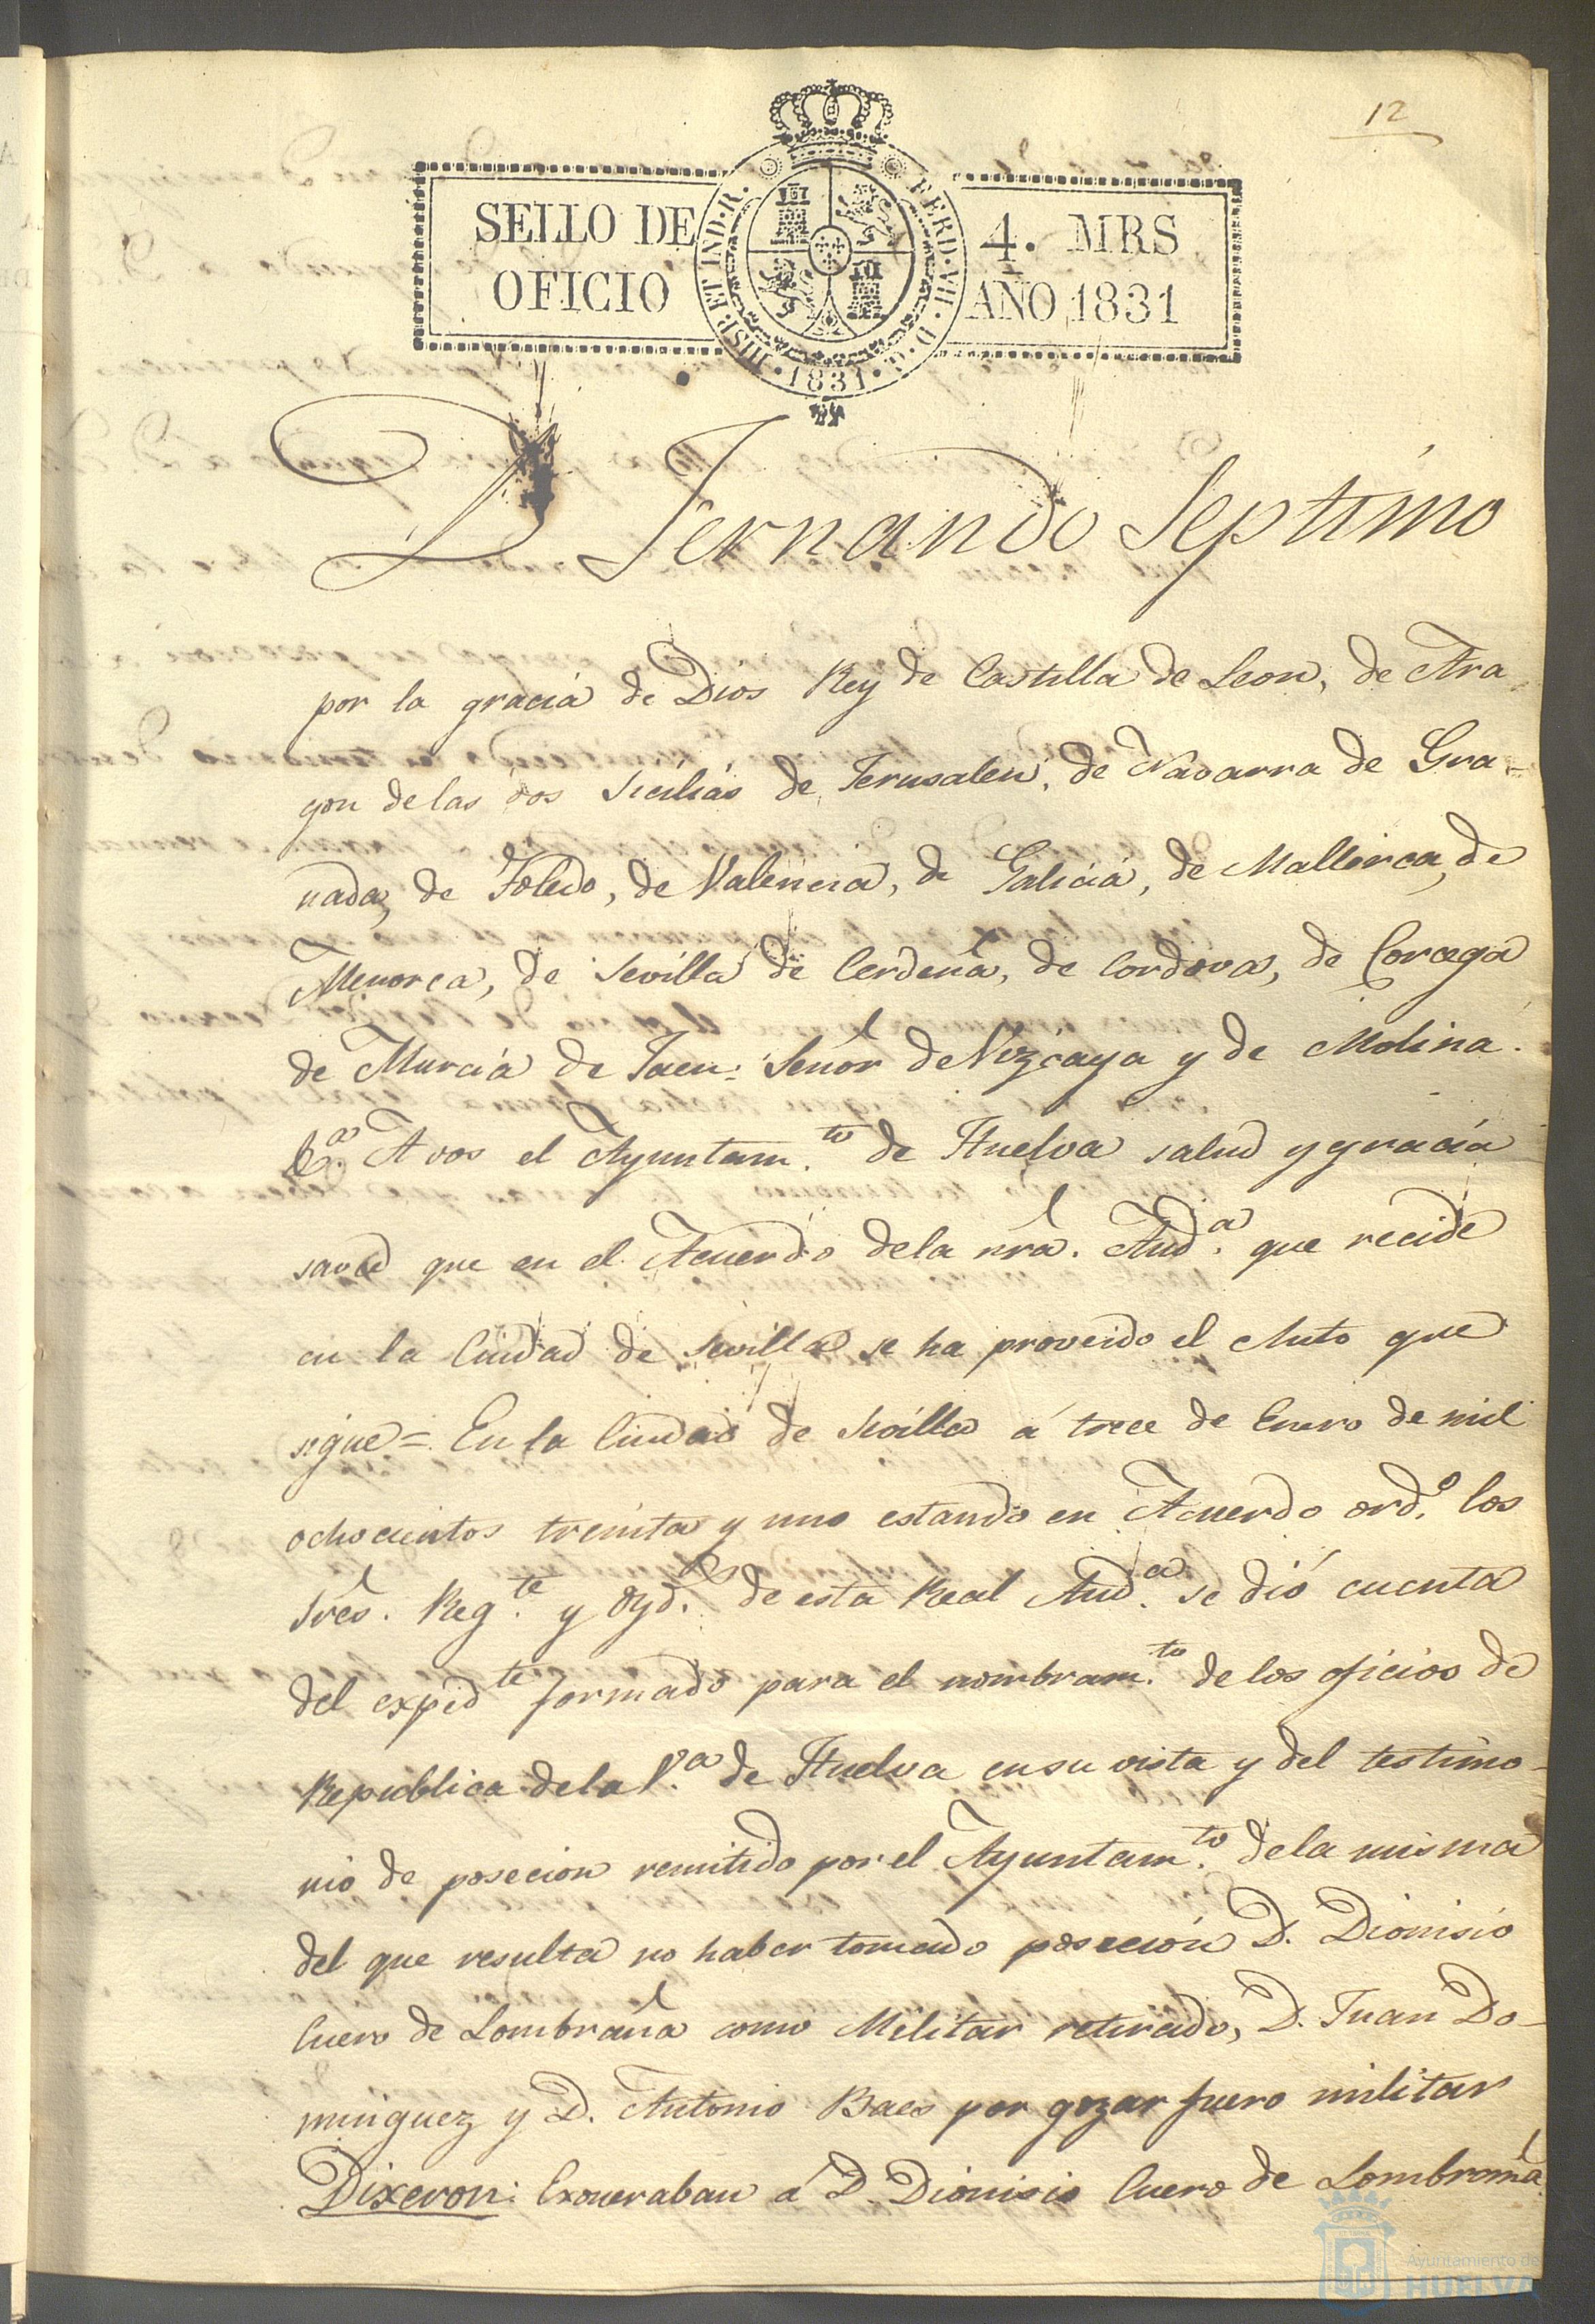 12
SELLO DE 4. MRS
OFICIO AÑO 1831
HISP. ET IND. R. FERD. VII. D. G. 1831
D. Fernando Septimo
por la gracia de Dios Rey de Castilla de Leon, de Ara
gon de las dos Sicilias de Jerusalen, de Navarra de Gra-
nada, de Toledo, de Valencia, de Galicia, de Mallorca, de
Menorca, de Sevilla de Cerdeña, de Cordova, de Corcega
de Murcia de Jaen: Señor de Vizcaya y de Molina.
&.ª A vos el Ayuntam.to de Huelva salud y gracia
saved que en el Acuerdo de la nra. Aud.a que recide
en la Ciudad de Sevilla se ha proveido el Auto que
sigue = En la Ciudad de Sevilla á trece de Enero de mil
ochocientos treinta y uno estando en Acuerdo ord.o los
Sres. Reg.te y Oyd.s de esta Real Aud.a se dió cuenta
del exped.te formado para el nombram.to de los oficios de
Republica de la V.a de Huelva en su vista y del testimo-
nio de posecion remitido por el Ayuntam.to de la misma
del que resulta no haber tomado posecion D. Dionisio
Cuero de Lombraña como Militar retirado, D. Juan Do-
minguez y D. Antonio Baes por gozar fuero militar
Dixeron: Exoneraban á D. Dionisio Cuero de Lombroña
Ayuntamiento de
HUELVA